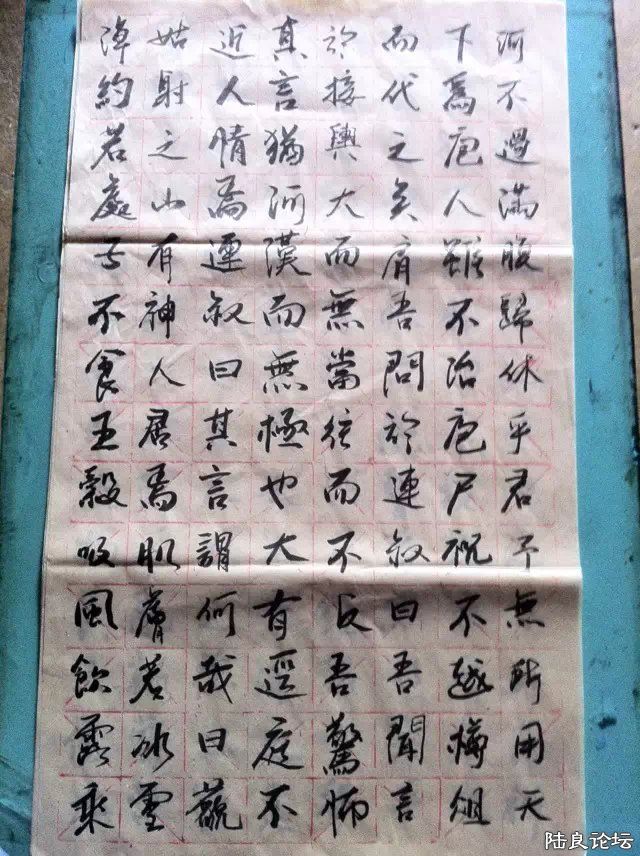 河不過滿腹歸休乎君予無所用天
下爲庖人雖不治庖尸祝不越樽俎
而代之矣肩吾問於連叔曰吾聞言
於接輿大而無當往而不反吾驚怖
其言猶河漢而無極也大有逕庭不
近人情焉連叔曰其言謂何哉曰藐
姑射之山有神人居焉肌膚若冰雪
淖約若處子不食五穀吸風飲露乘
陆良论坛